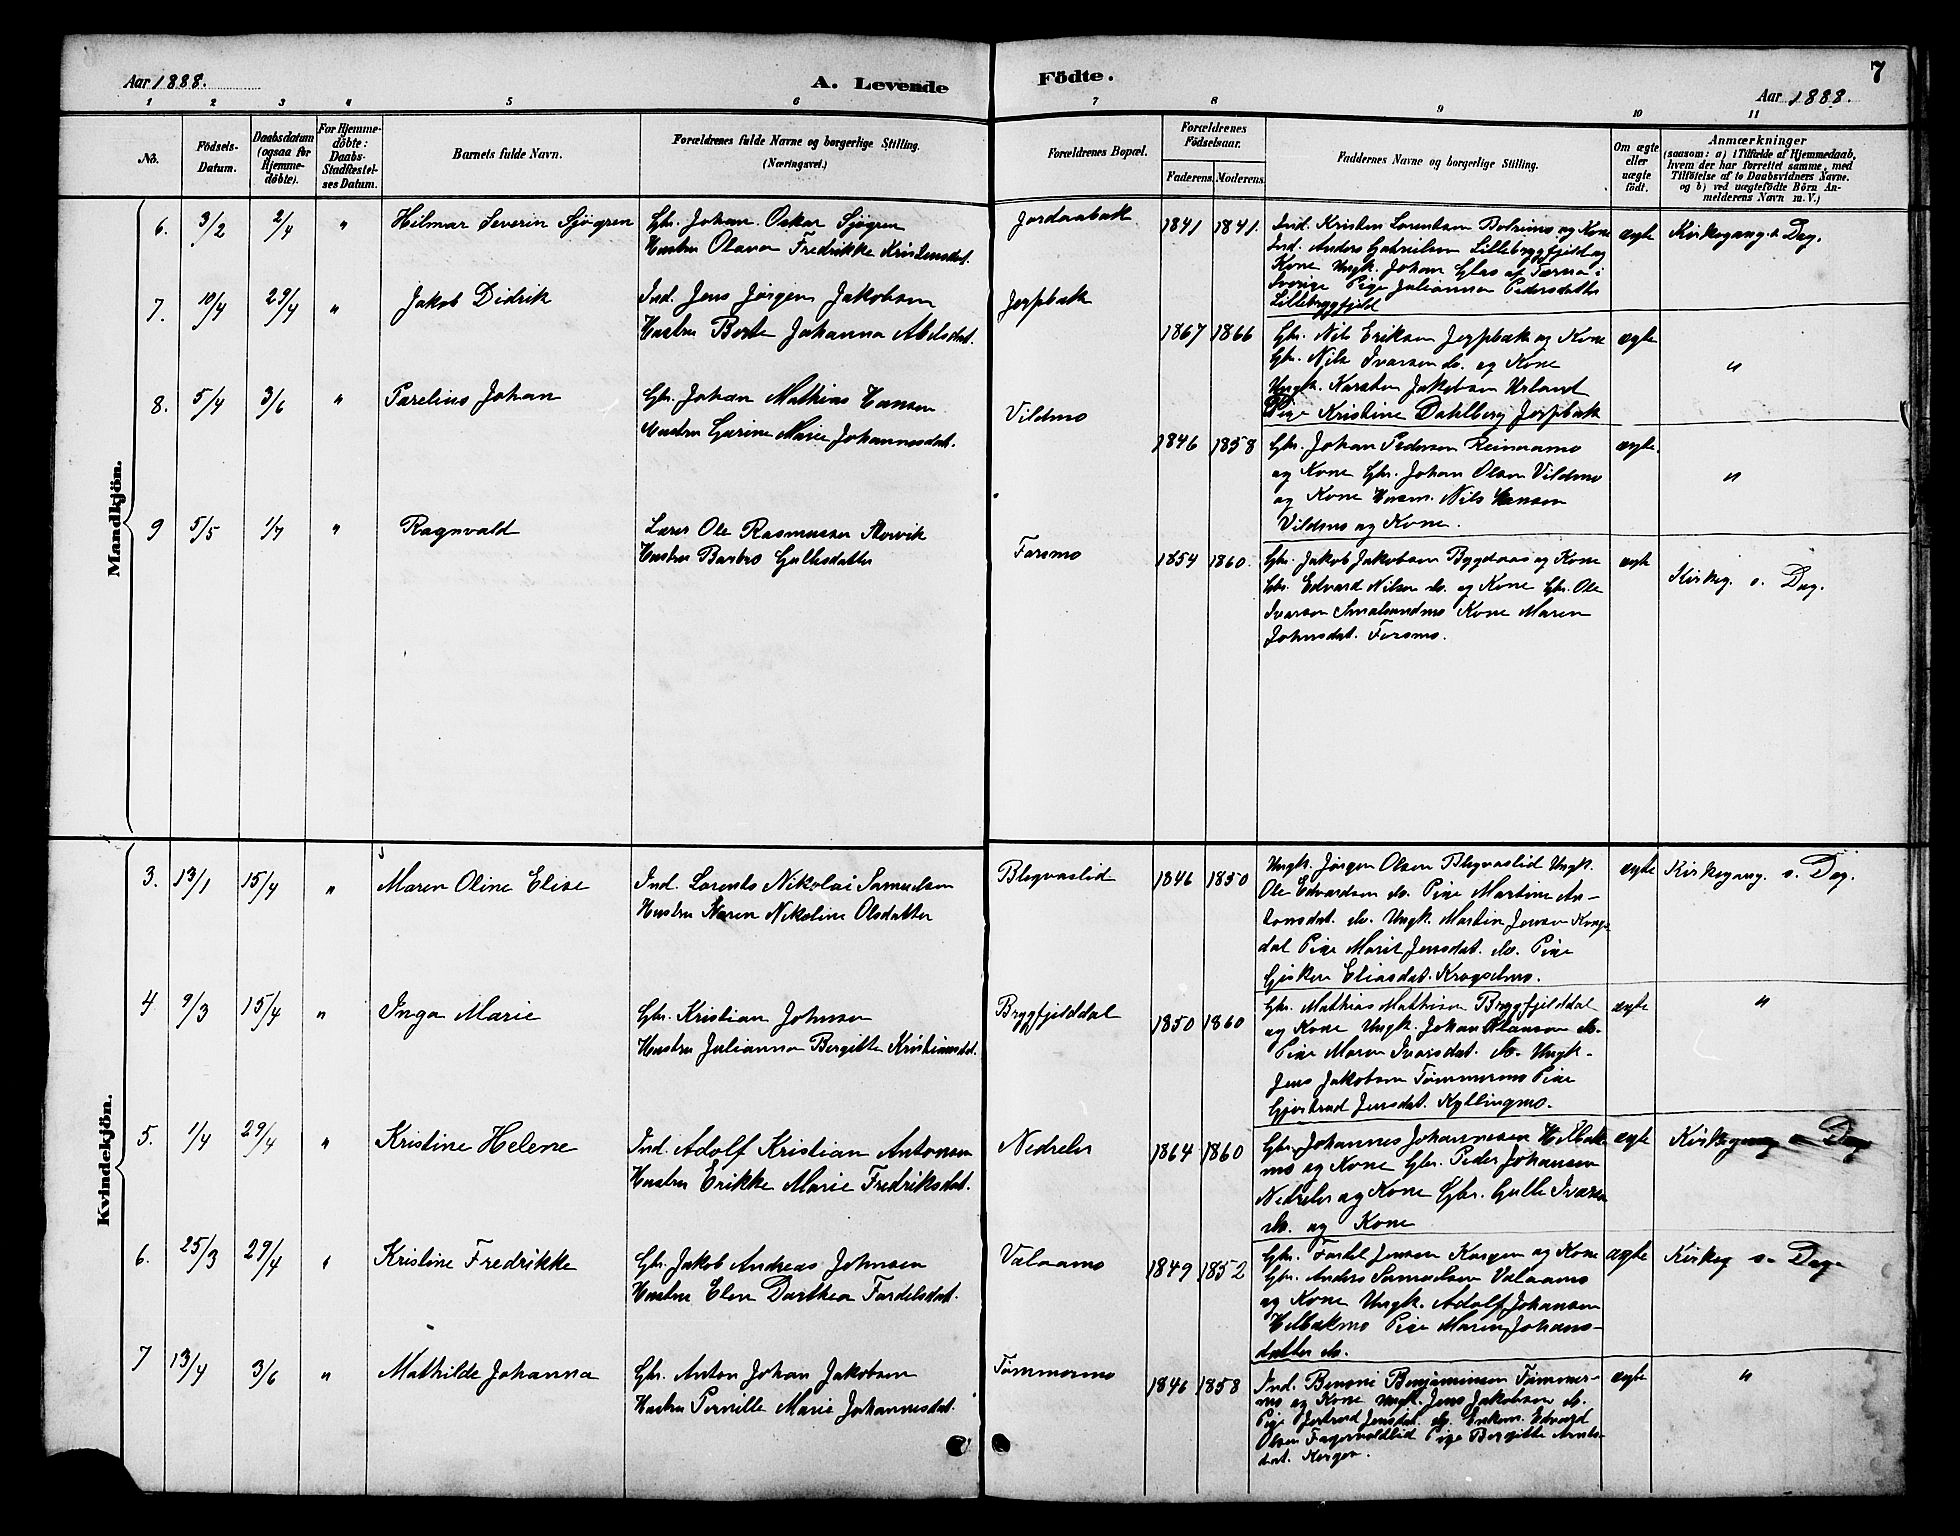 Aar 1888.
A. Levende Födte.
7
Aar 1888.
1 2 3 4 5 6 7 8 9 10 11
No.
Födsels-Datum.
Daabsdatum (ogsaa for Hjemme-döbte).
For Hjemme-döbte: Daabs-Stadfæstel-ses Datum.
Barnets fulde Navn.
Forældrenes fulde Navne og borgerlige Stilling.
(Næringsvei.)
Forældrenes Bopæl.
Forældrenes Födselsaar.
Faderens. Moderens.
Faddernes Navne og borgerlige Stilling.
Om ægte eller uægte födt.
Anmærkninger
(saasom: a) i Tilfælde af Hjemmedaab,
hvem der har forrettet samme, med
Tilföielse af to Daabsvidners Navne.
og b) ved uægtefödte Börn An-
melderens Navn m. V.)
Mandkjön.
6. 3/2 2/4 " Hilmar Severin Sjøgren
Gbr. Johan Oskar Sjøgren
Hustru Olava Fredrikke Kristensdat.
Jordaabæk
1841 1841.
Ind. Kristen Lorentsen Botnimo og Kone
Ind. Anders Gabrielsen Lillebryggfjeld og
Kone Ungk. Johan Glas af Tærna i
Sverige Pige Julianna Pedersdatter
Lillebryggfjeld
ægte
Kirkegang s. Dag.
7. 10/4 29/4 " Jakob Didrik
Ind. Jens Jørgen Jakobsen
Hustru Berte Johanna Abelsdat.
Jerpbæk
1867 1866
Gbr. Nils Eriksen Jerpbæk og Kone
Gbr. Nils Ivarsen do. og Kone
Ungk. Karsten Jakobsen Urland
Pige Kristine Dahlberg Jerpbæk
ægte
"
8. 5/4 3/6 " Parelius Johan
Gbr. Johan Mathias Hansen
Hustru Garine Marie Johannesdat.
Vildmo
1846 1858
Gbr. Johan Pedersen Reinaamo
og Kone Gbr. Johan Olsen Vildmo
og Kone Husm. Nils Hansen
Vildmo og Kone.
ægte.
"
9 5/5 1/7 " Ragnvald
Lærer Ole Rasmussen Storvik
Hustru Barbro Gullesdatter
Forsmo
1854 1860.
Gbr. Jakob Jakobsen Bygdaas og Kone
Gbr. Edvard Nilsen do. og Kone Gbr. Ole
Ivarsen Smalsundmo Kone Maren
Johnsdat. Forsmo.
ægte
Kirkeg. s. Dag.
Kvindekjön.
3. 13/1 15/4 " Maren Oline Elise
Ind. Lorents Nikolai Samuelsen
Hustru Karen Nikoline Olsdatter
Blegvaslid
1846 1850
Ungk. Jørgen Olsen Blegvaslid Ungk.
Ole Edvardsen do. Pige Martine An-
tonsdat. do. Ungk. Martin Jensen Krogs-
dal Pige Marit Jensdat. do. Pige
Gjsken Eliasdat. Krogselmo.
ægte
Kirkegang. s. Dag.
4. 9/3 15/4 " Inga Marie
Gbr. Kristian Johnsen
Hustru Julianna Bergitte Kristiansdat.
Bryggfjelddal
1850 1860
Gbr. Mathias Mathisen Bryggfjelddal
og Kone Ungk. Johan Klausen do.
Pige Maren Ivarsdat. do. Ungk.
Jens Jakobsen Tømmermo Pige
Gjertrud Jensdat. Kyllingmo.
ægte
"
5. 1/4 29/4 " Kristine Helene
Ind. Adolf Kristian Antonsen
Hustru Erikke Marie Fredriksdat.
Nedreler
1864 1860
Gbr. Johannes Johannesen Helbæk-
mo og Kone Gbr. Peder Johansen
Nedreler og Kone Gbr. Gulle Ivarsen
do. og Kone
ægte
Kirkegang s Dag
6. 25/3 29/4 " Kristine Fredrikke
Gbr. Jakob Andreas Johnsen
Hustru Elen Dorthea Fordelsdat.
Valaamo
1849 1852
Gbr. Fordel Jensen Korgen og Kone
Gbr. Anders Samuelsen Valaamo
og Kone Ungk. Adolf Johansen
Helbækmo Pige Maren Johans-
datter do.
ægte
Kirkeg s. Dag
7 13/4 3/6 " Mathilde Johanna
Gbr. Anton Johan Jakobsen
Hustru Pernille Marie Johannesdat.
Tømmermo
1846 1858
Ind. Benoni Benjaminsen Tømmer-
mo og Kone Ungk. Jens Jakobsen do.
Pige Gjertrud Jensdat. do. Enkem. Edvard
Olsen Fagervoldlid Pige Bergitte Arnts-
dat. Korgen.
ægte
"